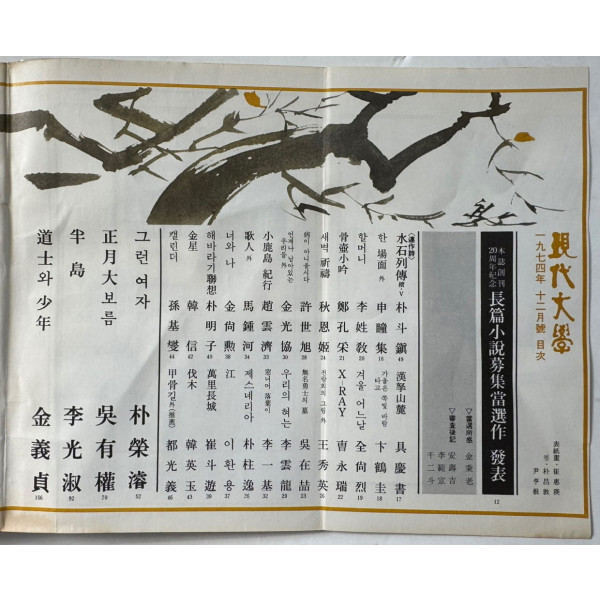 現代文學
一九七四年 十二月號 目次
表紙畫·崔惠瑛
컷·朴昌敦
尹亨根
本誌創刊
20周年紀念
長篇小說募集當選作 發表
▽當選所感 金秉老
▽審査後記 安壽吉
李範宣
千二斗
12
〈連作詩〉
水石列傳 續·V 朴斗鎭 49
한 場面 外 申瞳集 16
할머니 李姓敎 20
骨壺小吟 鄭孔采 21
새벽 祈禱 秋恩姬 24
銃이 아니올시다 許世旭 28
언제나 남아있는
우리들을 外 金光協 30
小鹿島 紀行 趙雲濟 33
歌人 外 馬鍾河 34
너와 나 金尙勳 38
해바라기 聯想 朴明子 40
金星 韓信 42
캘린더 孫基燮 44
漢拏山麓 具慶書 17
가을은 쪽빛 바람
타고 卞鶴圭 18
겨울 어느날 全尙烈 19
X-RAY 曺永瑞 22
전람회의 그림 外 王秀英 26
無名勇士의 墓 吳在喆 23
우리의 혀는 李雲龍 29
窓너머 落葉이 李一基 32
제스네리아 朴柱逸 36
江 이환용 37
萬里長城 崔斗遊 39
伐木 韓英玉 43
甲骨길 外 (推薦) 都光義 66
그런 여자 朴榮濬 52
正月大보름 吳有權 70
半島 李光淑 92
道士와 少年 金義貞 106